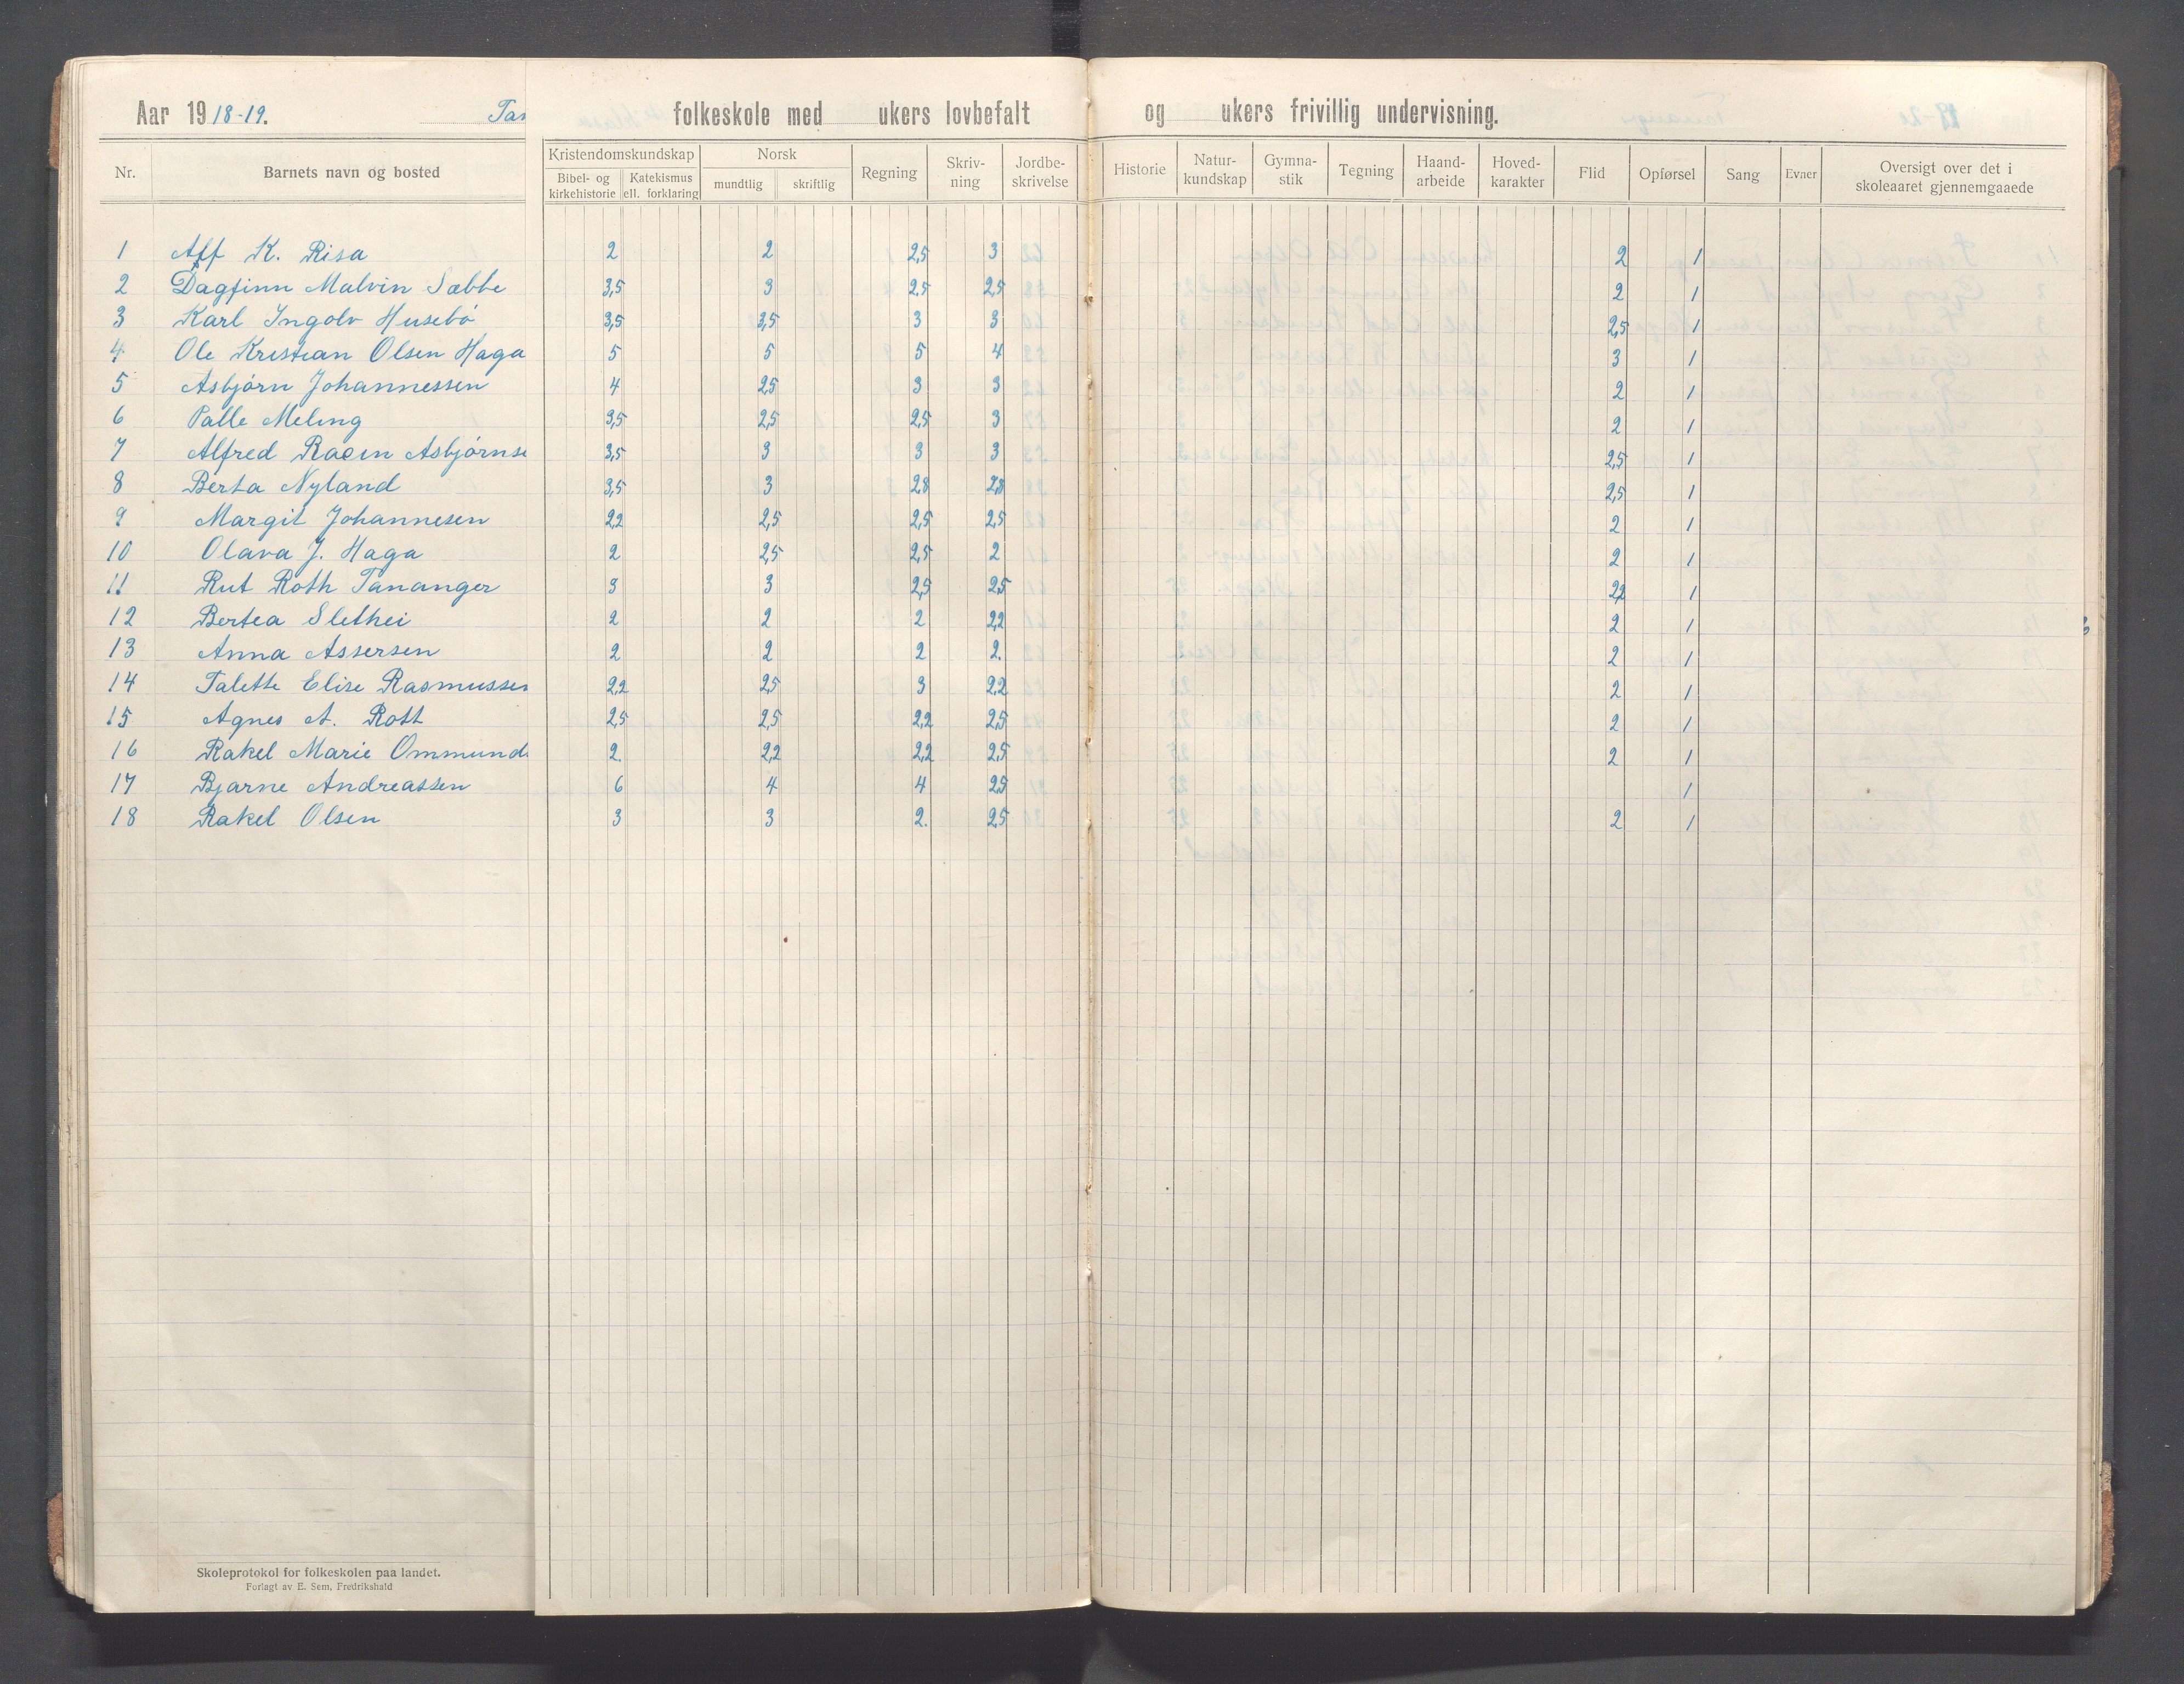 Aar 1918-19. Tan folkeskole med ukers lovbefalt og ukers frivillig undervisning.
Nr. Barnets navn og bosted Kristendomskundskap Bibel- og kirkehistorie Katekismus ell. forklaring Norsk mundtlig skriftlig Regning Skriv-ning Jordbe-skrivelse Historie Natur-kundskap Gymna-stik Tegning Haand-arbeide Hoved-karakter Flid Opførsel Sang Evner Oversigt over det i skoleaaret gjennemgaaede
1 Alf K. Risa 2 2 2,5 3 2 1
2 Dagfinn Malvin Sæbbe 3,5 3 2,5 2,5 2 1
3 Karl Ingolv Husebø 3,5 3,5 3 3 2,5 1
4 Ole Kristian Olsen Haga 5 5 5 4 3 1
5 Asbjørn Johannessen 4 2,5 3 3 2 1
6 Palle Meling 3,5 2,5 2,5 3 2 1
7 Alfred Racin Asbjørnse 3,5 3 3 3 2,5 1
8 Berta Nyland 3,5 3 2,8 2,8 2,5 1
9 Margit Johannesen 2,2 2,5 2,5 2,5 2 1
10 Olava J. Haga 2 2,5 2,5 2 2 1
11 Rut Roth Tananger 3 3 2,5 2,5 2,2 1
12 Bertea Slethei 2 2 2 2,2 2 1
13 Anna Assersen 2 2 2 2. 2 1
14 Talette Elise Rasmussen 2,2 2,5 3 2,2 2 1
15 Agnes A. Rott 2,5 2,5 2,2 2,5 2 1
16 Rakel Marie Ommund. 2. 2,2 2,2 2,5 2 1
17 Bjarne Andreassen 6 4 4 2,5 1
18 Rakel Olsen 3 3 2. 2,5 2 1
Skoleprotokol for folkeskolen paa landet.
Forlagt av E. Sem, Fredrikshald